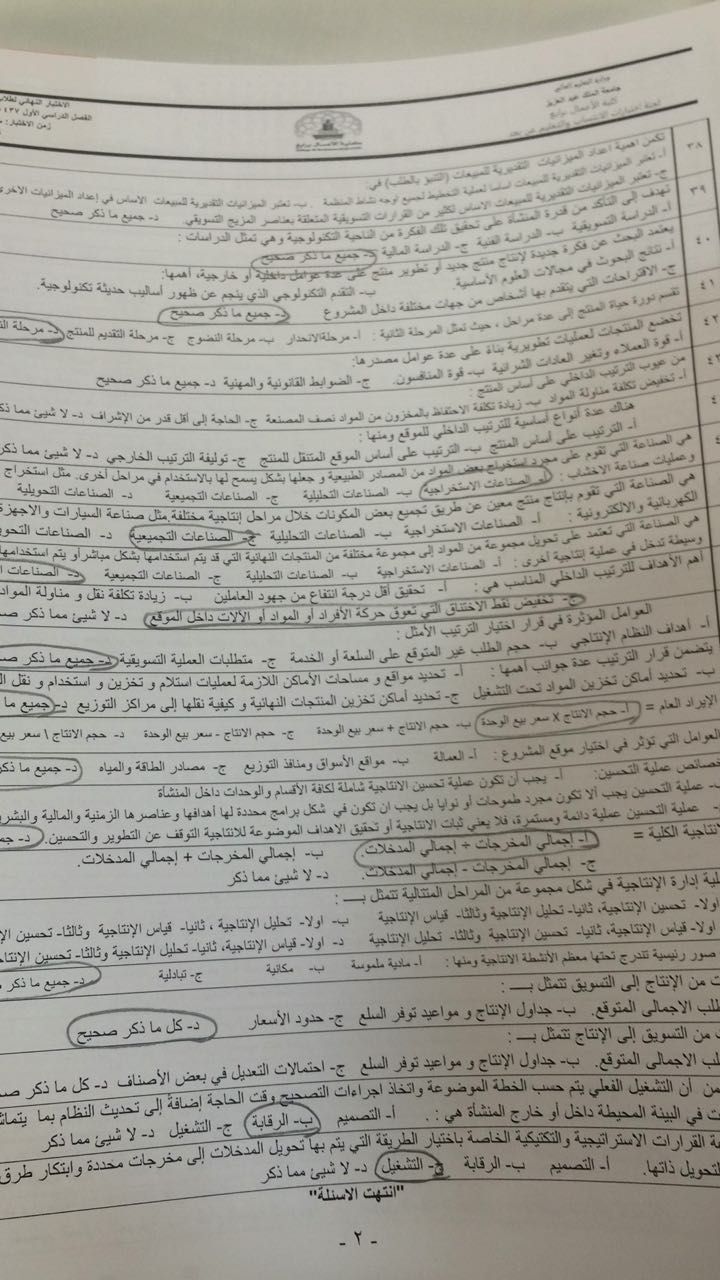 وزارة التعليم العالي
جامعة الملك عبد العزيز
كلية الأعمال برابغ
لجنة اختبارات الانتساب والتعليم عن بعد
كلية الأعمال برابغ
الاختبار النهائي لطلاب
الفصل الدراسي الأول ٤٣٧
زمن الاختبار:
٣٨ تكمن أهمية اعداد الميزانيات التقديرية للمبيعات (التنبؤ بالطلب) في:
أ- تعتبر الميزانيات التقديرية للمبيعات اساسا لعملية التخطيط لجميع أوجه نشاط المنظمة. ب- تعتبر الميزانيات التقديرية للمبيعات الاساس في إعداد الميزانيات الاخرى
ج- تعتبر الميزانيات التقديرية للمبيعات الاساس لكثير من القرارات التسويقية المتعلقة بعناصر المزيج التسويقي. د- جميع ما ذكر صحيح
٣٩ تهدف إلى التأكد من قدرة المنشأة على تحقيق تلك الفكرة من الناحية التكنولوجية وهي تمثل الدراسات :
أ- الدراسة التسويقية ب- الدراسة الفنية ج- الدراسة المالية د- جميع ما ذكر صحيح
٤٠ يعتمد البحث عن فكرة جديدة لإنتاج منتج جديد أو تطوير منتج على عدة عوامل داخلية أو خارجية، أهمها:
أ- نتائج البحوث في مجالات العلوم الأساسية. ب- التقدم التكنولوجي الذي ينجم عن ظهور أساليب حديثة تكنولوجية.
ج- الاقتراحات التي يتقدم بها أشخاص من جهات مختلفة داخل المشروع د- جميع ما ذكر صحيح
٤١ تقسم دورة حياة المنتج إلى عدة مراحل ، حيث تمثل المرحلة الثانية : أ- مرحلة الانحدار ب- مرحلة النضوج ج- مرحلة التقديم للمنتج د- مرحلة
٤٢ تخضع المنتجات لعمليات تطويرية بناة على عدة عوامل مصدرها:
أ- قوة العملاء وتغير العادات الشرائية ب- قوة المنافسون. ج- الضوابط القانونية والمهنية د- جميع ما ذكر صحيح
من عيوب الترتيب الداخلي على أساس المنتج :
أ- تخفيض تكلفة مناولة المواد ب- زيادة تكلفة الاحتفاظ بالمخزون من المواد نصف المصنعة ج- الحاجة إلى أقل قدر من الإشراف د- لا شيئ مما
هناك عدة أنواع أساسية للترتيب الداخلي للموقع ومنها :
أ- الترتيب على أساس المنتج ب- الترتيب على أساس الموقع المتنقل للمنتج ج- توليفة الترتيب الخارجي د- لا شيئ مما
هي الصناعة التي تقوم على مجرد استخراج بعض المواد من المصادر الطبيعية و جعلها بشكل يسمح لها بالاستخدام في مراحل أخرى. مثل استخراج
وعمليات صناعة الاخشاب : أ- الصناعات الاستخراجية ب- الصناعات التحليلية ج- الصناعات التجميعية د- الصناعات التحويلية
هي الصناعة التي تقوم بإنتاج منتج معين عن طريق تجميع بعض المكونات خلال مراحل إنتاجية مختلفة.مثل صناعة السيارات والاجهزة
الكهربائية والالكترونية : أ- الصناعات الاستخراجية ب- الصناعات التحليلية ج- الصناعات التجميعية د- الصناعات
هي الصناعة التي تعتمد على تحويل مجموعة من المواد إلى مجموعة مختلفة من المنتجات النهائية التي قد يتم استخدامها بشكل مباشر أو يتم استخدامها
وسيطة تدخل في عملية إنتاجية أخرى : أ- الصناعات الاستخراجية ب- الصناعات التحليلية ج- الصناعات التجميعية د- الصناعات
أهم الأهداف للترتيب الداخلي المناسب هي : أ- تحقيق أقل درجة انتفاع من جهود العاملين ب- زيادة تكلفة نقل و مناولة المواد
ج- تخفيض نقط الاختناق التي تعوق حركة الأفراد أو المواد أو الآلات داخل الموقع د- لا شيئ مما
العوامل المؤثرة في قرار اختيار الترتيب الأمثل :
أ- أهداف النظام الإنتاجي ب- حجم الطلب غير المتوقع على السلعة أو الخدمة ج- متطلبات العملية التسويقية د- جميع ما ذكر
يتضمن قرار الترتيب عدة جوانب أهمها : أ- تحديد مواقع و مساحات الأماكن اللازمة لعمليات استلام و تخزين و استخدام و نقل
ب- تحديد أماكن تخزين المواد تحت التشغيل ج- تحديد أماكن تخزين المنتجات النهائية و كيفية نقلها إلى مراكز التوزيع د- جميع ما
الإيراد العام = أ- حجم الانتاج x سعر بيع الوحدة ب- حجم الانتاج + سعر بيع الوحدة ج- حجم الانتاج - سعر بيع الوحدة د- حجم الانتاج \ سعر
العوامل التي تؤثر في اختيار موقع المشروع : أ- العمالة ب- مواقع الأسواق ومنافذ التوزيع ج- مصادر الطاقة والمياه د- جميع ما
خصائص عملية التحسين: أ- يجب أن تكون عملية تحسين الانتاجية شاملة لكافة الأقسام والوحدات داخل المنشأة
عملية التحسين يجب ألا تكون مجرد طموحات أو نوايا بل يجب ان تكون في شكل برامج محددة لها أهدافها وعناصرها الزمنية والمالية
عملية التحسين عملية دائمة ومستمرة، فلا يعني ثبات الانتاجية أو تحقيق الاهداف الموضوعة للانتاجية التوقف عن التطوير والتحسين. د-
الكلية = أ- إجمالي المخرجات ÷ إجمالي المدخلات. ب- إجمالي المخرجات + إجمالي المدخلات.
ج- إجمالي المخرجات - إجمالي المدخلات. د- لا شيئ مما ذكر
إدارة الإنتاجية في شكل مجموعة من المراحل المتتالية تتمثل بـ :
اولا- تحسين الإنتاجية، ثانيا- تحليل الإنتاجية وثالثا- قياس الإنتاجية ب- اولا- تحليل الإنتاجية ، ثانيا- قياس الإنتاجية وثالثا- تحسين
اولا- قياس الإنتاجية، ثانيا- تحسين الإنتاجية وثالثا- تحليل الإنتاجية د- اولا- قياس الإنتاجية، ثانيا- تحليل الإنتاجية وثالثا- تحسين
صور رئيسية تندرج تحتها معظم الأنشطة الانتاجية ومنها : أ- مادية ملموسة ب- مكانية ج- تبادلية د- جميع ما ذكر
من الإنتاج إلى التسويق تتمثل بـ :
الاجمالي المتوقع. ب- جداول الإنتاج و مواعيد توفر السلع ج- حدود الأسعار د- كل ما ذكر صحيح
من التسويق إلى الإنتاج تتمثل بـ :
الاجمالي المتوقع. ب- جداول الإنتاج و مواعيد توفر السلع ج- احتمالات التعديل في بعض الأصناف د- كل ما ذكر
من أن التشغيل الفعلي يتم حسب الخطة الموضوعة واتخاذ اجراءات التصحيح وقت الحاجة إضافة إلى تحديث النظام بما
في البيئة المحيطة داخل أو خارج المنشأة هي : أ- التصميم ب- الرقابة ج- التشغيل د- لا شيئ مما ذكر
القرارات الاستراتيجية والتكتيكية الخاصة باختيار الطريقة التي يتم بها تحويل المدخلات إلى مخرجات محددة وابتكار طرق
التحويل ذاتها. أ- التصميم ب- الرقابة ج- التشغيل د- لا شيئ مما ذكر
"انتهت الاسئلة"
- ٢ -